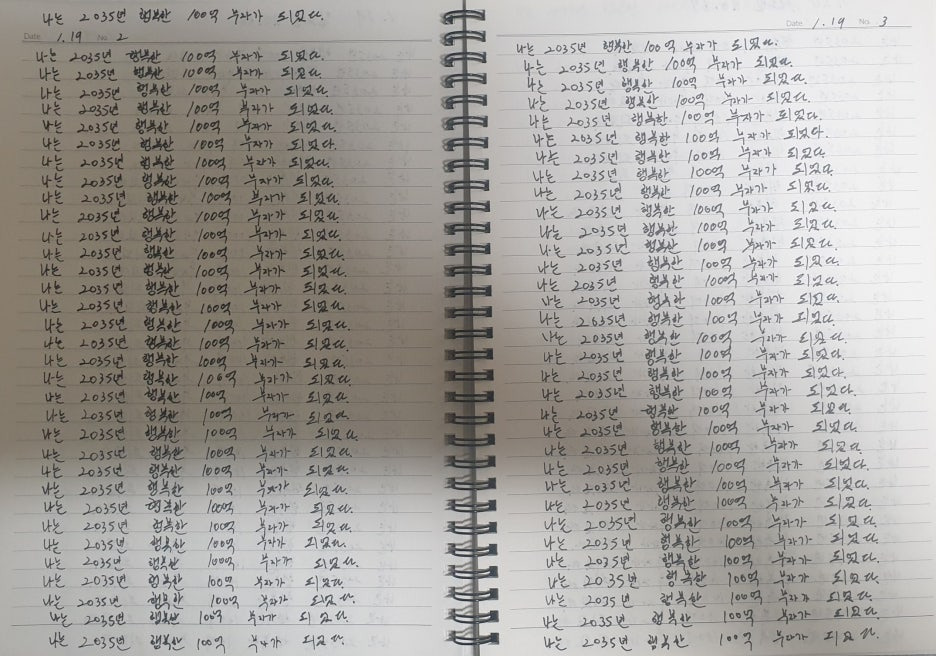 나는 2035년 행복한 100억 부자가 되었다.
Date 1.19 No. 2
나는 2035년 행복한 100억 부자가 되었다.
나는 2035년 행복한 100억 부자가 되었다.
나는 2035년 행복한 100억 부자가 되었다.
나는 2035년 행복한 100억 부자가 되었다.
나는 2035년 행복한 100억 부자가 되었다.
나는 2035년 행복한 100억 부자가 되었다.
나는 2035년 행복한 100억 부자가 되었다.
나는 2035년 행복한 100억 부자가 되었다.
나는 2035년 행복한 100억 부자가 되었다.
나는 2035년 행복한 100억 부자가 되었다.
나는 2035년 행복한 100억 부자가 되었다.
나는 2035년 행복한 100억 부자가 되었다.
나는 2035년 행복한 100억 부자가 되었다.
나는 2035년 행복한 100억 부자가 되었다.
나는 2035년 행복한 100억 부자가 되었다.
나는 2035년 행복한 100억 부자가 되었다.
나는 2035년 행복한 100억 부자가 되었다.
나는 2035년 행복한 100억 부자가 되었다.
나는 2035년 행복한 100억 부자가 되었다.
나는 2035년 행복한 100억 부자가 되었다.
나는 2035년 행복한 100억 부자가 되었다.
나는 2035년 행복한 100억 부자가 되었다.
나는 2035년 행복한 100억 부자가 되었다.
나는 2035년 행복한 100억 부자가 되었다.
나는 2035년 행복한 100억 부자가 되었다.
나는 2035년 행복한 100억 부자가 되었다.
나는 2035년 행복한 100억 부자가 되었다.
나는 2035년 행복한 100억 부자가 되었다.
나는 2035년 행복한 100억 부자가 되었다.
나는 2035년 행복한 100억 부자가 되었다.
나는 2035년 행복한 100억 부자가 되었다.
나는 2035년 행복한 100억 부자가 되었다.
나는 2035년 행복한 100억 부자가 되었다.
Date 1.19 No. 3
나는 2035년 행복한 100억 부자가 되었다.
나는 2035년 행복한 100억 부자가 되었다.
나는 2035년 행복한 100억 부자가 되었다.
나는 2035년 행복한 100억 부자가 되었다.
나는 2035년 행복한 100억 부자가 되었다.
나는 2035년 행복한 100억 부자가 되었다.
나는 2035년 행복한 100억 부자가 되었다.
나는 2035년 행복한 100억 부자가 되었다.
나는 2035년 행복한 100억 부자가 되었다.
나는 2035년 행복한 100억 부자가 되었다.
나는 2035년 행복한 100억 부자가 되었다.
나는 2035년 행복한 100억 부자가 되었다.
나는 2035년 행복한 100억 부자가 되었다.
나는 2035년 행복한 100억 부자가 되었다.
나는 2035년 행복한 100억 부자가 되었다.
나는 2035년 행복한 100억 부자가 되었다.
나는 2035년 행복한 100억 부자가 되었다.
나는 2035년 행복한 100억 부자가 되었다.
나는 2035년 행복한 100억 부자가 되었다.
나는 2035년 행복한 100억 부자가 되었다.
나는 2035년 행복한 100억 부자가 되었다.
나는 2035년 행복한 100억 부자가 되었다.
나는 2035년 행복한 100억 부자가 되었다.
나는 2035년 행복한 100억 부자가 되었다.
나는 2035년 행복한 100억 부자가 되었다.
나는 2035년 행복한 100억 부자가 되었다.
나는 2035년 행복한 100억 부자가 되었다.
나는 2035년 행복한 100억 부자가 되었다.
나는 2035년 행복한 100억 부자가 되었다.
나는 2035년 행복한 100억 부자가 되었다.
나는 2035년 행복한 100억 부자가 되었다.
나는 2035년 행복한 100억 부자가 되었다.
나는 2035년 행복한 100억 부자가 되었다.